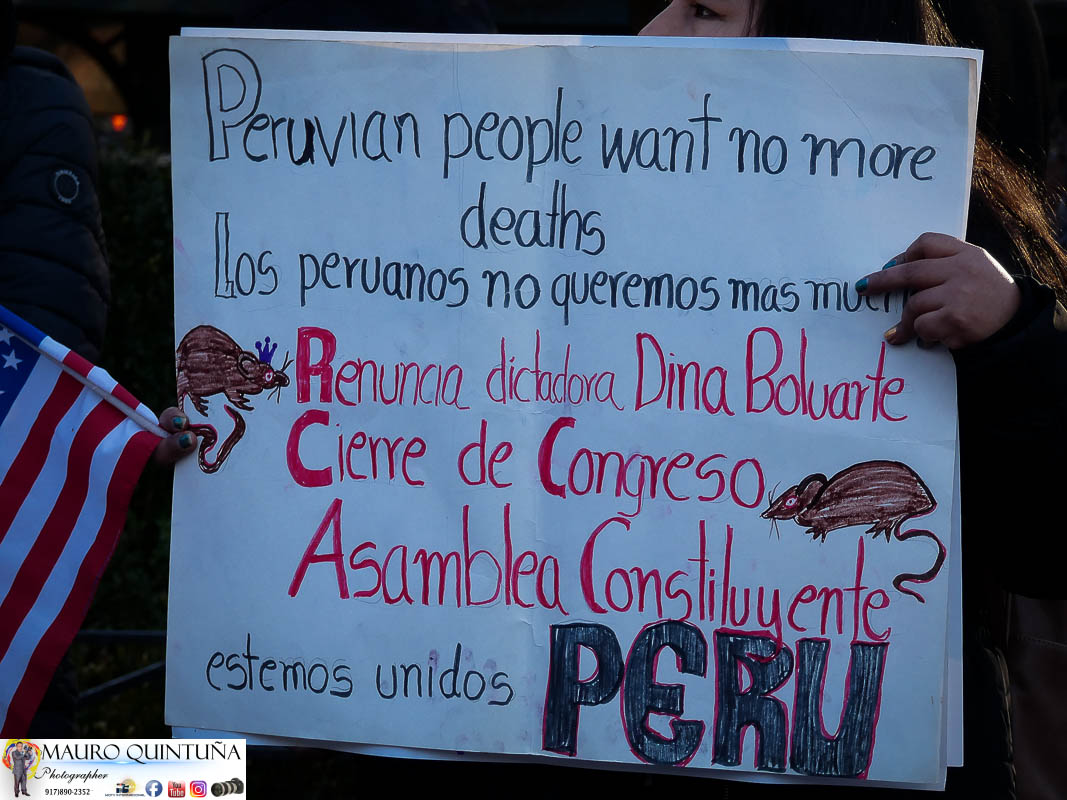 Peruvian people want no more
deaths
Los peruanos no queremos mas
Renuncia dictadora Dina Boluarte
Cierre de Congreso
Asamblea Constiluyente
estemos unidos PERU
MAURO QUINTUÑA
Photographer
917)890-2352
You Tube